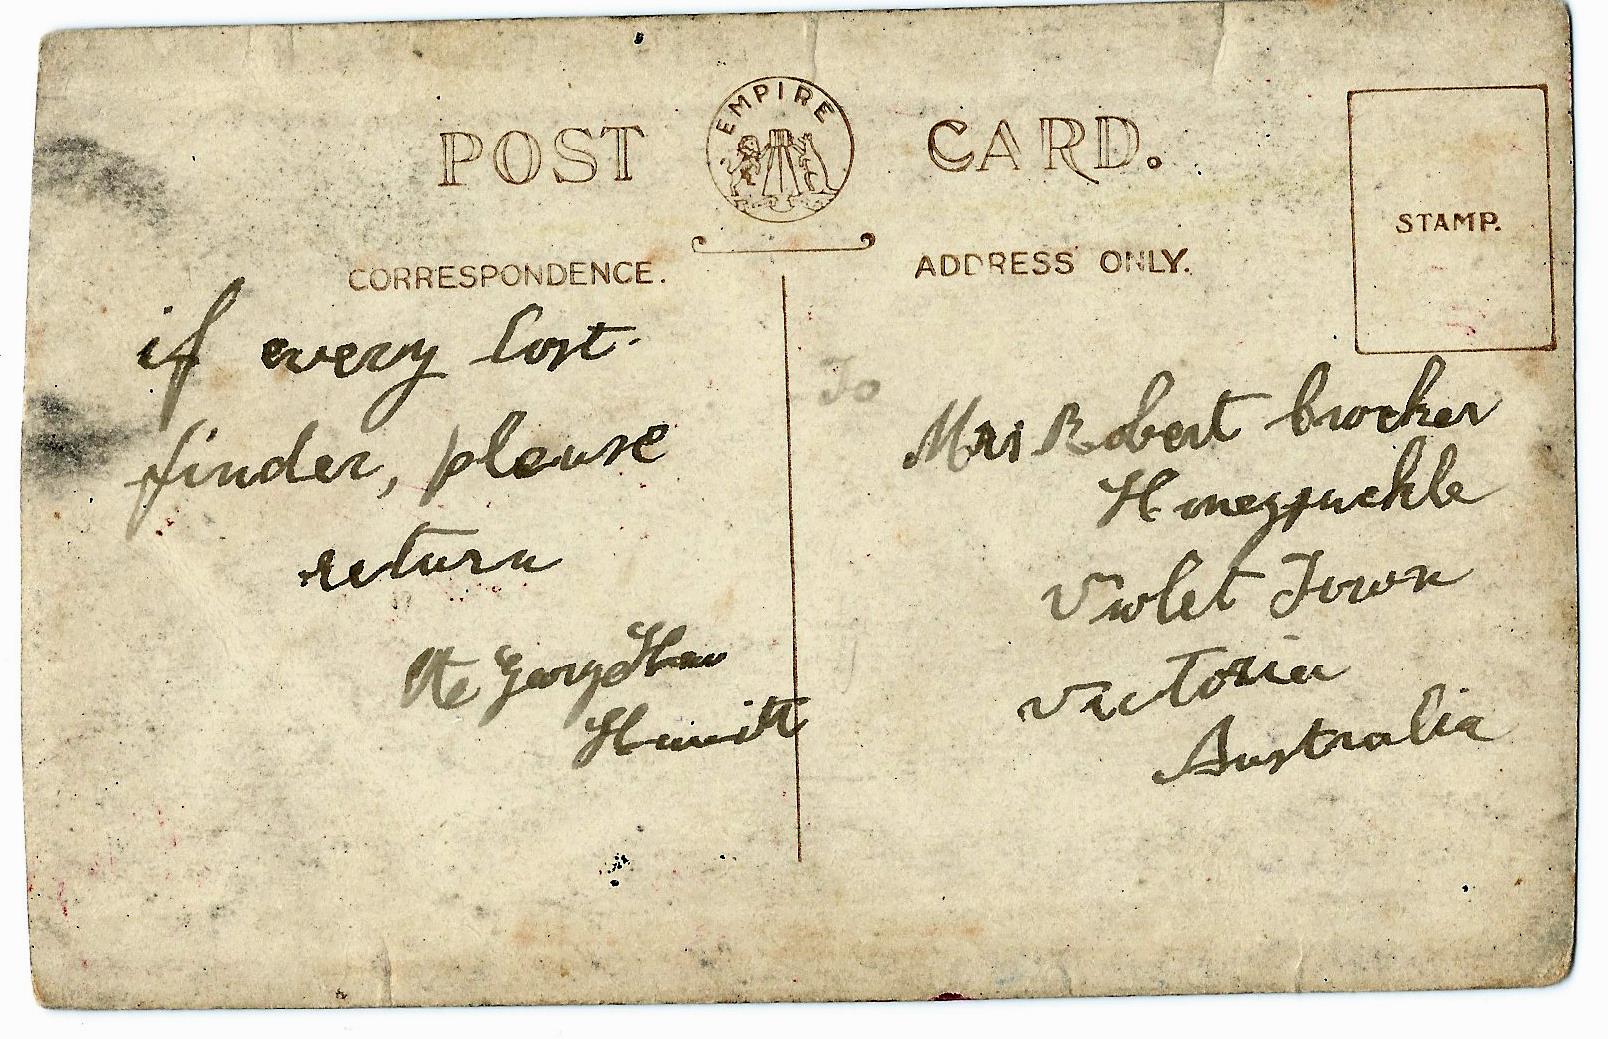 POST CARD.
EMPIRE
STAMP.
CORRESPONDENCE.
ADDRESS ONLY.
if every lost.
finder, please
return
Pte George
To
Mrs Robert Crocker
Honeysuckle
Violet Town
Victoria
Australia